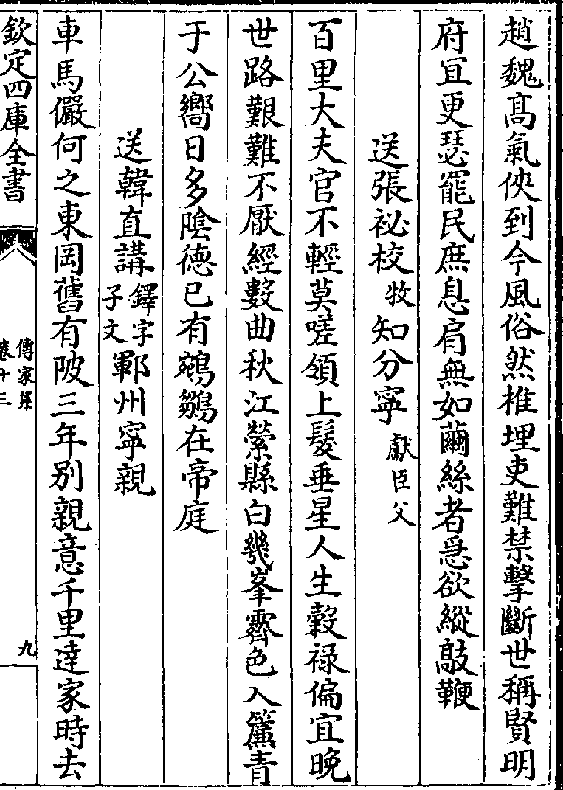 趙魏髙氣俠到今風俗然椎埋吏難禁擊斷世稱賢明
府冝更瑟罷民庶息肩無如繭絲者急欲縱敲鞭
送張祕校牧知分寧獻臣父
百里大夫官不輕莫嗟領上髮垂星人生穀禄偏宜晚
世路艱難不厭經數曲秋江縈縣白幾峯霽色入簾青
于公嚮日多陰徳已有鵷鶵在帝庭
送韓直講鐸字子文鄆州寧親
車馬儼何之東岡舊有陂三年别親意千里逹家時去
欽定四庫全書
傳家集
卷十三
九